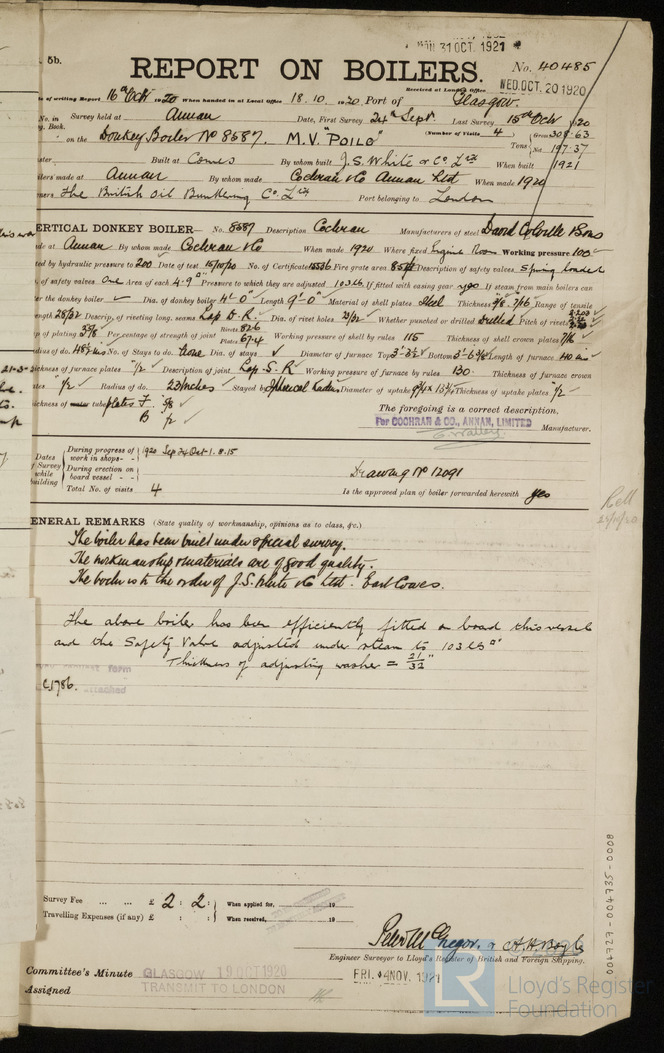 31 OCT. 1921
5b.
REPORT ON BOILERS.
No. 40485
Received at London Office WED. OCT. 20 1920
of writing Report 16th Oct 1920 When handed in at Local Office 18.10.1920 Port of Glasgow.
No. in Survey held at Annan Date, First Survey 24th Sept Last Survey 15th Octr 1920
Book. (Number of Visits 4) Gross 308.63
on the Donkey Boiler No 8587. M.V. "POILO" Tons Net 197.37
Built at Cowes By whom built J.S. White & Co. Ltd When built 1921
made at Annan By whom made Cochran & Co Annan Ltd When made 1920
The British Oil Bunkering Co. Ltd Port belonging to London
VERTICAL DONKEY BOILER— No. 8587 Description Cochran Manufacturers of steel David Colville & Sons
at Annan By whom made Cochran & Co When made 1920 Where fixed Engine Room Working pressure 100
by hydraulic pressure to 200 Date of test 15/10/20 No. of Certificate 15536 Fire grate area Description of safety valves Spring loaded
of safety valves One Area of each 4.9 Pressure to which they are adjusted 103 lb. If fitted with easing gear yes If steam from main boilers can
the donkey boiler Dia. of donkey boiler 4'-0" Length 9'-0" Material of shell plates Steel Thickness Range of tensile
28/32 Descrip. of riveting long. seams Lap D.R. Dia. of rivet holes 23/32 Whether punched or drilled Drilled Pitch of rivets
of plating Per centage of strength of joint Rivets 82.6 Plates 67.4 Working pressure of shell by rules 115 Thickness of shell crown plates 7/16
of do. No. of Stays to do. None Dia. of stays Diameter of furnace Top 3'-3½ Bottom Length of furnace 40 ins
thickness of furnace plates ½ Description of joint Lap S.R. Working pressure of furnace by rules 130 Thickness of furnace crown
½ Radius of do. 23 inches Stayed by Spherical Radius Diameter of uptake Thickness of uptake plates ½
thickness of tube plates F. 5/8
B ½
The foregoing is a correct description,
For COCHRAN & CO., ANNAN, LIMITED
Manufacturer.
Dates of Survey while building
During progress of work in shops - - 1920 Sep 24 Oct 1. 8. 15
During erection on board vessel - -
Total No. of visits 4
Drawing No 12091
Is the approved plan of boiler forwarded herewith yes
GENERAL REMARKS (State quality of workmanship, opinions as to class, &c.)
The boiler has been built under special survey.
The workmanship & materials are of good quality.
The boiler is to the order of J.S. White & Co Ltd. East Cowes.
The above boiler has been efficiently fitted on board this vessel
and the Safety Valve adjusted under steam to 103 lbs □"
Thickness of adjusting washer = 21/32"
form
attached
C.1786.
Survey Fee ... ... £ 2 : 2 : When applied for, 19
Travelling Expenses (if any) £ : : When received, 19
Peter McGregor & A.H. Boyle
Engineer Surveyor to Lloyd's Register of British and Foreign Shipping.
Committee's Minute GLASGOW 19 OCT 1920
FRI. 4 NOV. 1921
Assigned TRANSMIT TO LONDON
004727-004735-0008
LR
Lloyd's Register
Foundation